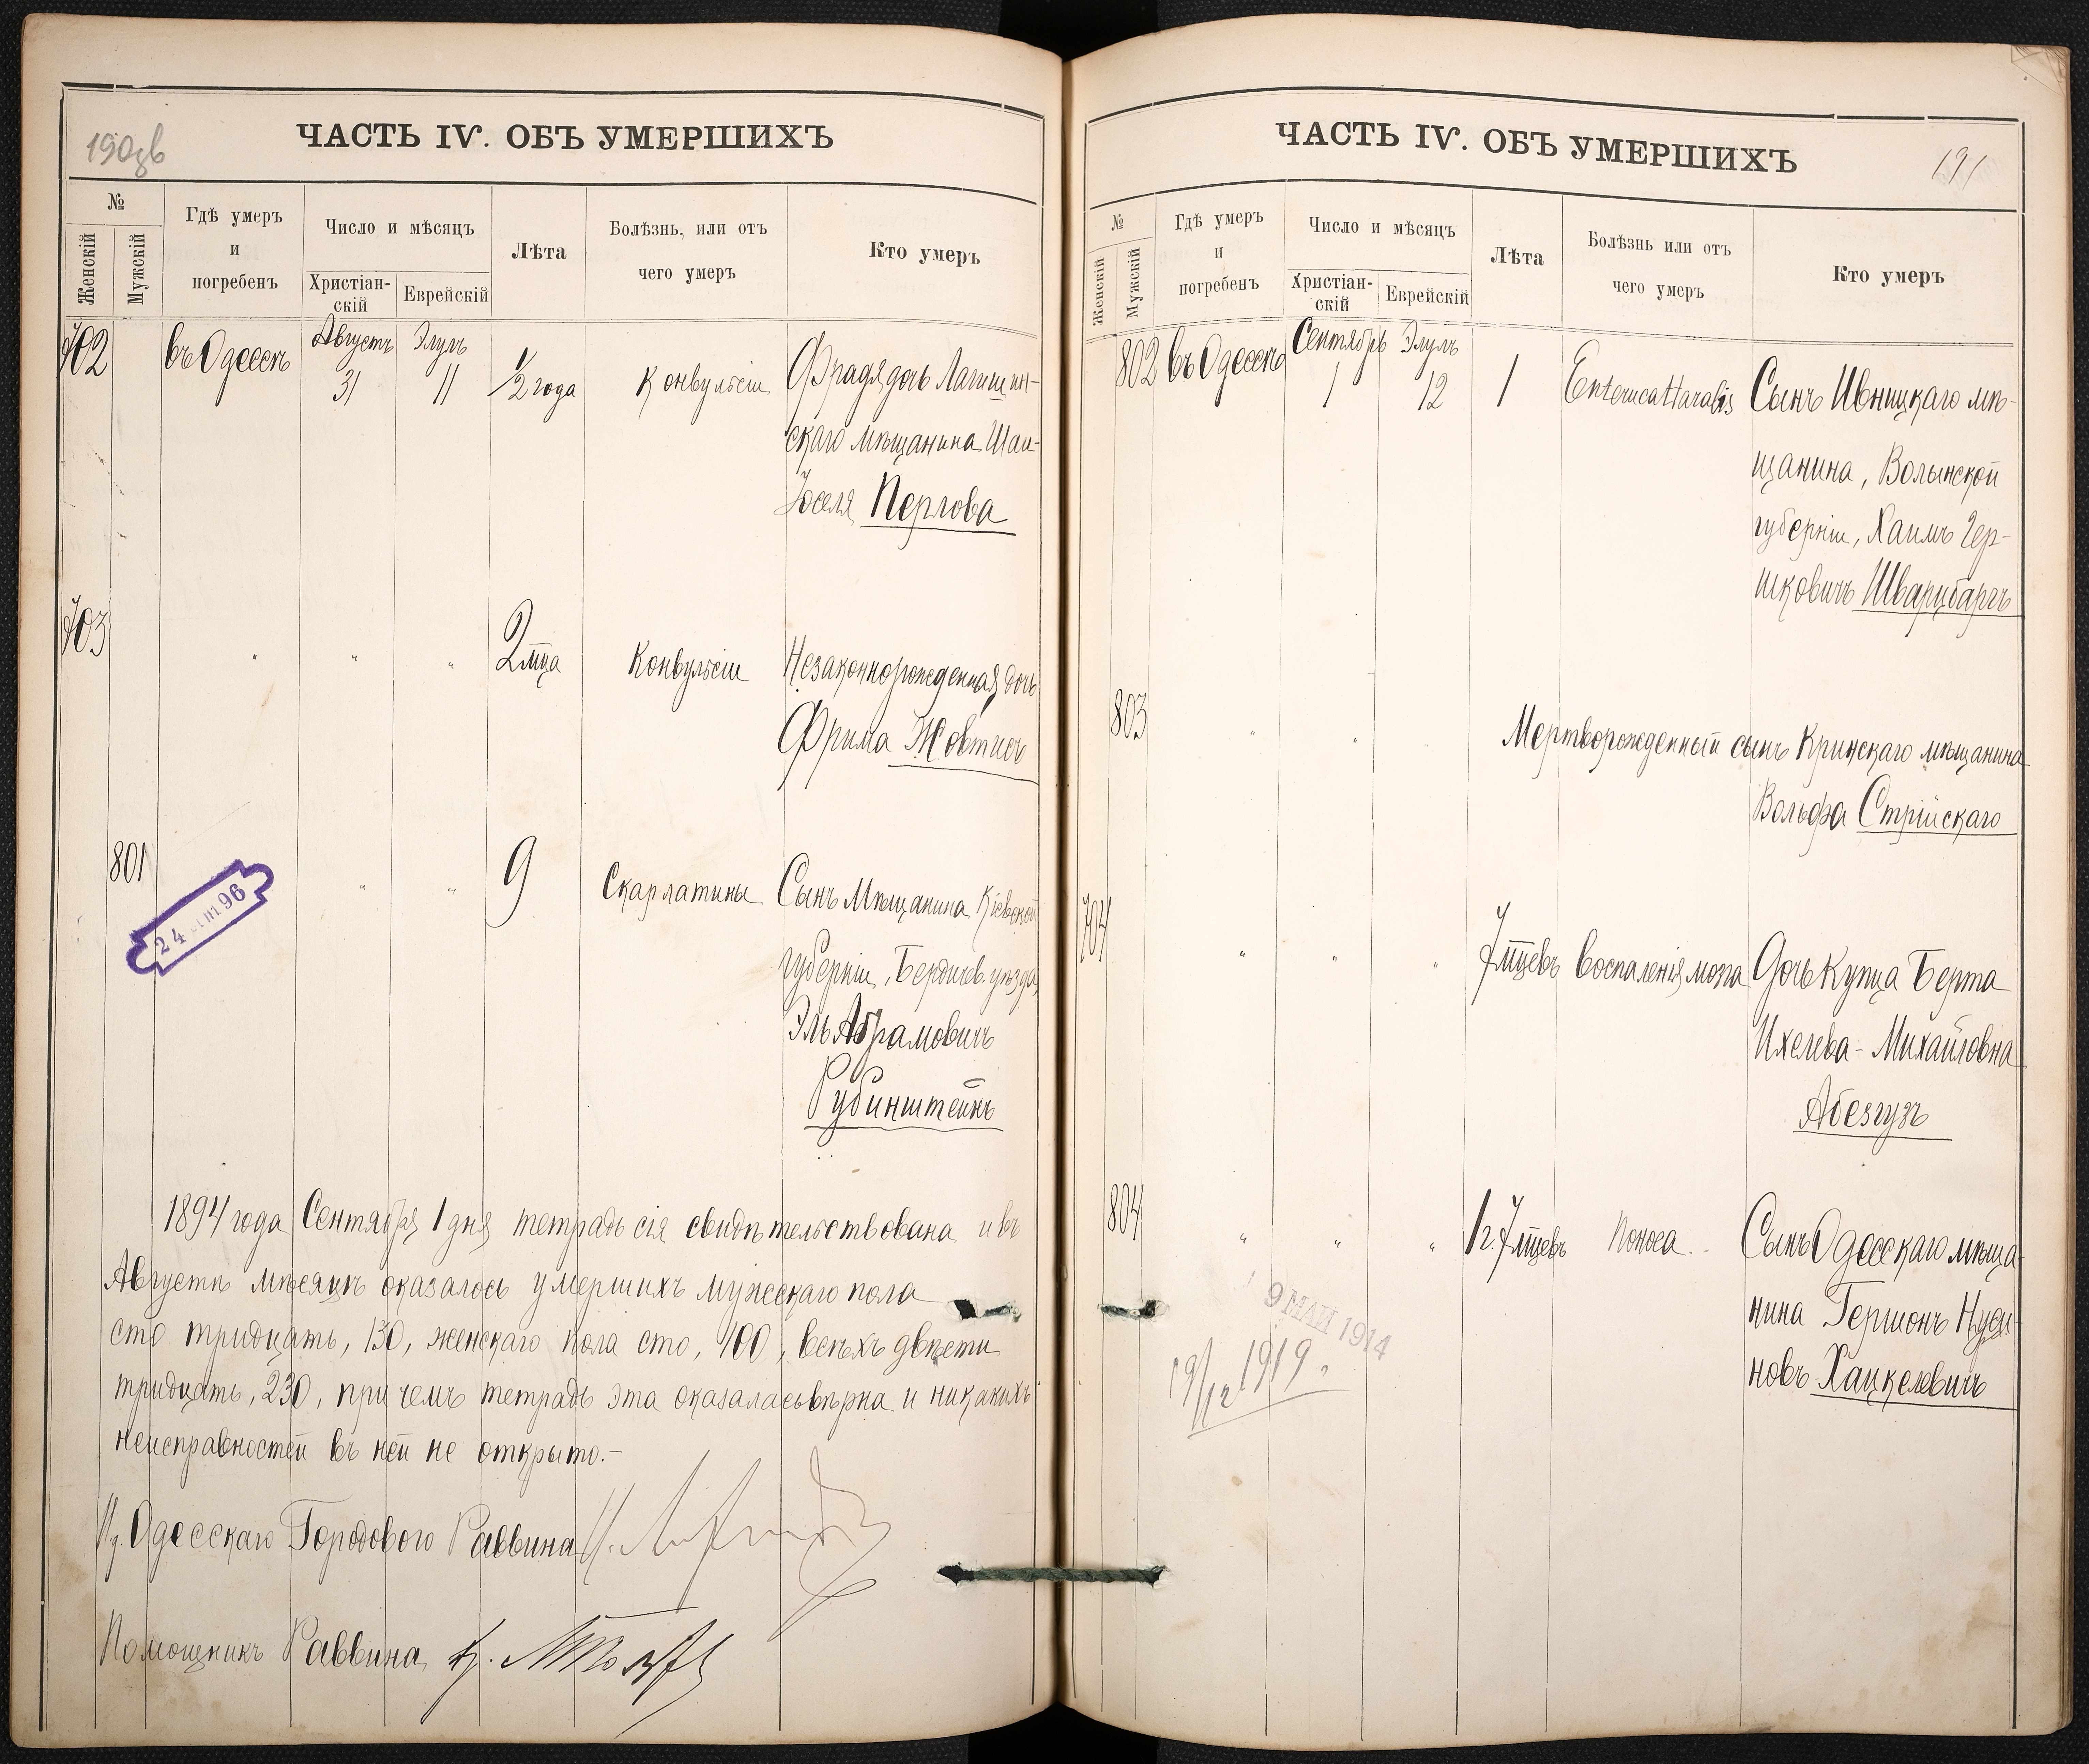 190об
ЧАСТЬ IV. ОБЪ УМЕРШИХЪ
№
Женскій
Мужскій
Гдѣ умеръ
и
погребенъ
Число и мѣсяцъ
Христіан-
скій
Еврейскій
Лѣта
Болѣзнь, или отъ
чего умеръ
Кто умеръ
702
въ Одессѣ
Августъ
31
Элулъ
11
1/2 года
Конвульсіи
Фрадя дочь Лагишин-
скаго мѣщанина Шаи-
Іоселя Перлова
703
"
"
"
2 мца
Конвульсіи
Незаконнорожденная дочь
Фрима Жовтисъ
801
24 96
"
"
9
Скарлатины
Сынъ Мѣщанина Кіевской
губерніи, Бердичев. уѣзда,
Эль Абрамовичъ
Рубинштейнъ
1894 года Сентября 1 дня тетрадь сія свидѣтельствована и въ
Августѣ мѣсяцѣ оказалось умершихъ мужескаго пола
сто тридцать, 130, женскаго пола сто, 100, всѣхъ двѣсти
тридцать, 230, при чемъ тетрадь эта оказалась вѣрна и никакихъ
неисправностей въ ней не открыто.-
И д. Одесскаго Городового Раввина
Помощникъ Раввина
191
ЧАСТЬ IV. ОБЪ УМЕРШИХЪ
№
Женскій
Мужскій
Гдѣ умеръ
и
погребенъ
Число и мѣсяцъ
Христіан-
скій
Еврейскій
Лѣта
Болѣзнь или отъ
чего умеръ
Кто умеръ
802
въ Одессѣ
Сентябрь
1
Элулъ
12
1
Сынъ Ивницкаго мѣ-
щанина, Волынской
губерніи, Хаимъ Гер-
шковичъ Шварцбаргъ
803
"
"
Мертворожденный сынъ Кринскаго мѣщанина
Вольфа Стрійскаго
704
"
"
"
7 мцевъ
Воспаленія мозга
Дочь Купца Берта
Ихелева-Михайловна
Абезгузъ
804
"
"
"
1 г. 7 мцевъ
Поноса
Сынъ Одесскаго мѣща-
нина Гершонъ Нуси-
новъ Хацкелевичъ
9 МАЙ 1914
19/12 1919.